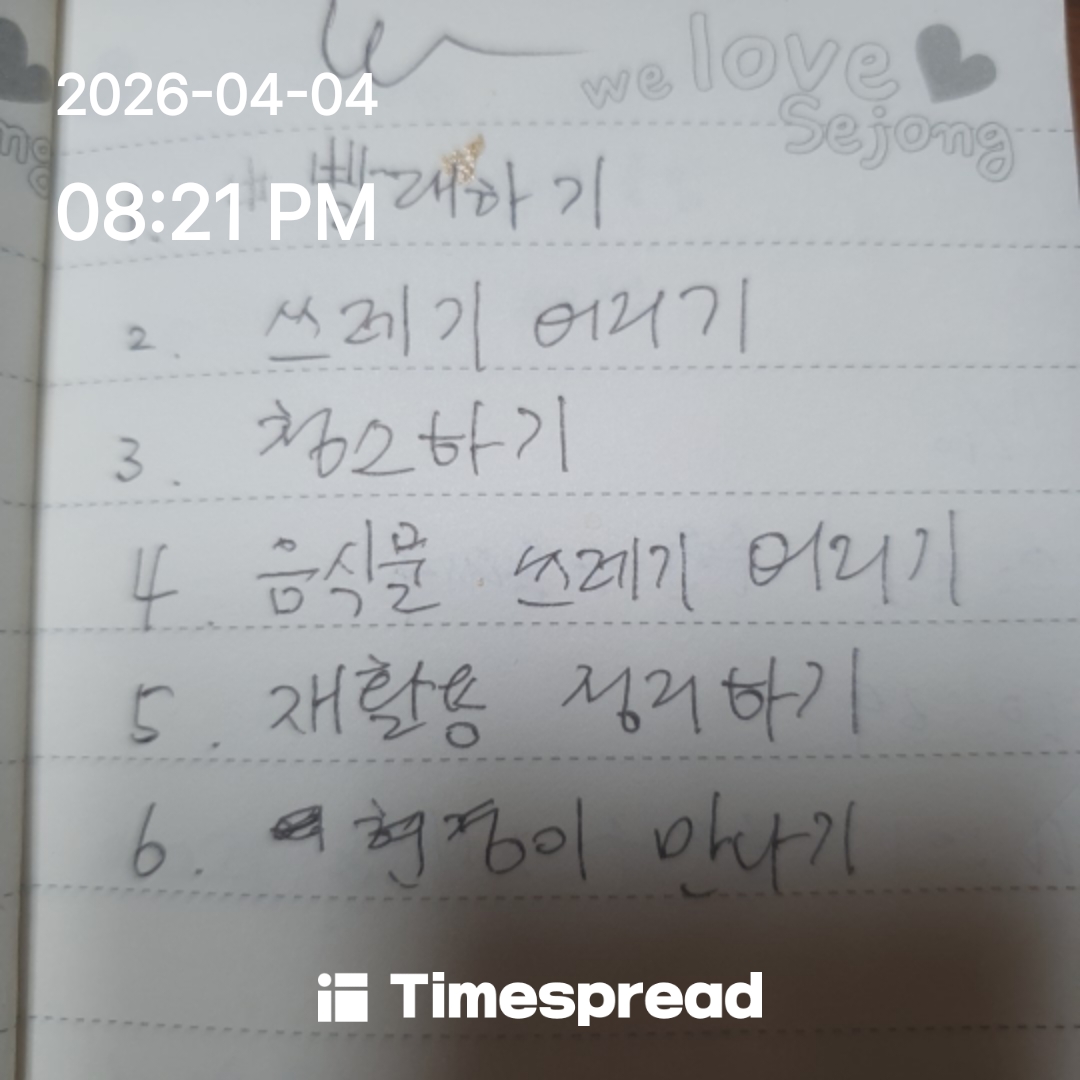 we love
Sejong
2026-04-04
08:21 PM
빨래하기
2. 쓰레기 버리기
3. 청소하기
4. 음식물 쓰레기 버리기
5. 재활용 정리하기
6. 현정이 만나기
Timespread